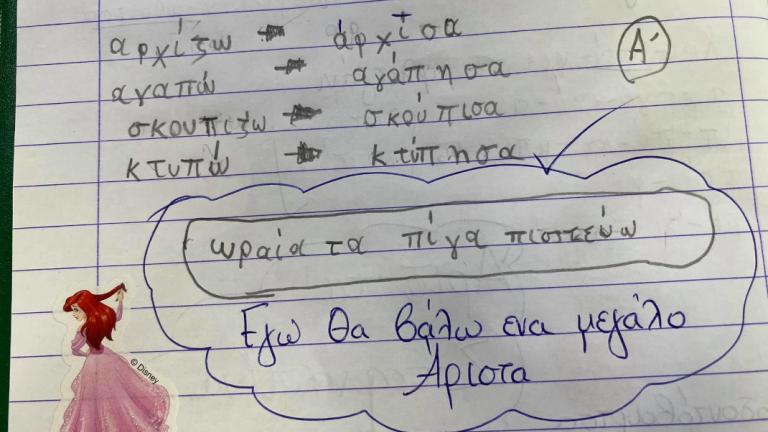 αρχίζω → άρχισα
Α'
αγαπώ → αγάπησα
σκουπίζω → σκούπισα
κτυπώ → κτύπησα
ωραία τα πίγα πιστεύω
Εγώ θα βάλω ενα μεγάλο
Άριστα
© Disney